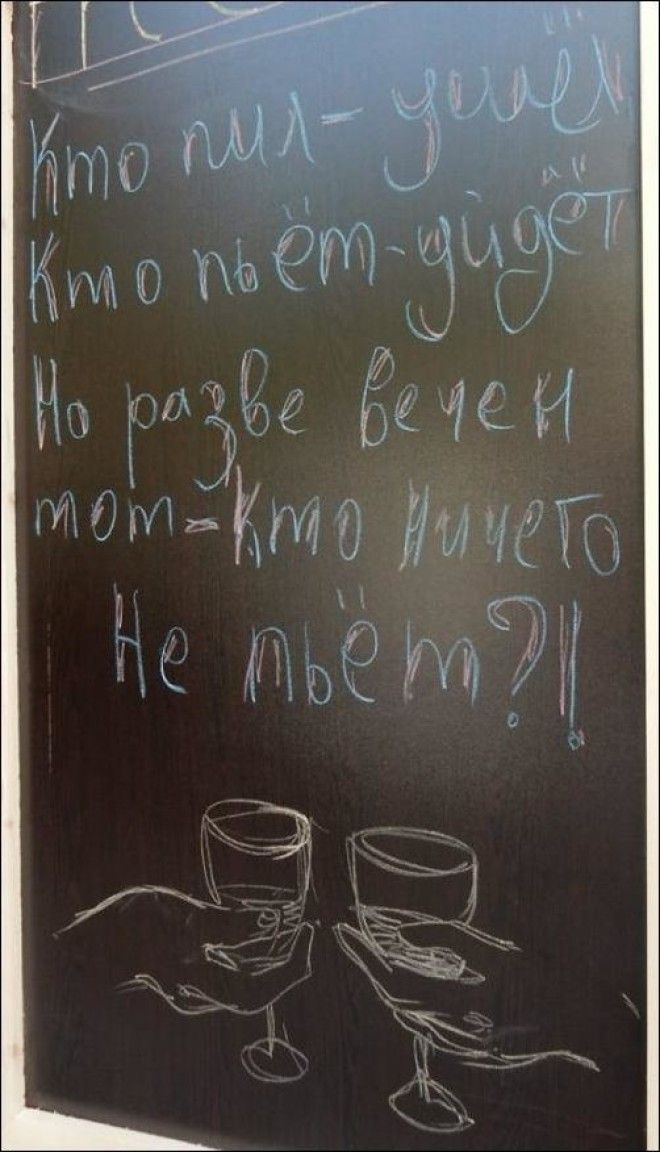 Кто пил - ушёл
Кто пьёт - уйдёт
Но разве вечен
тот - Кто Ничего
Не пьёт?!